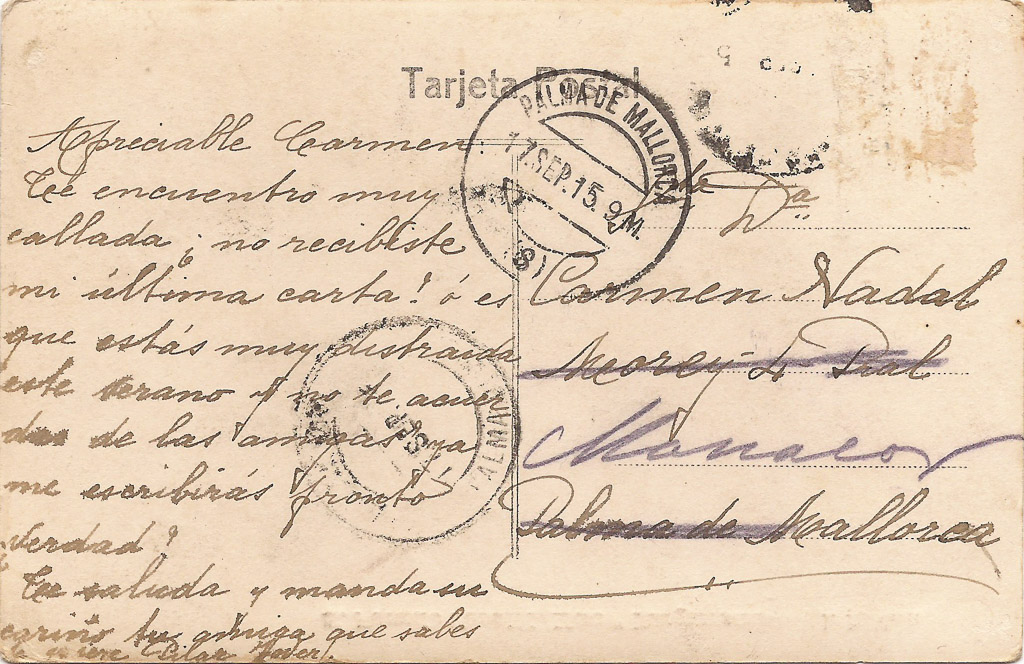 Tarjeta Postal
PALMA DE MALLORCA
17.SEP.15.9/M.
(8)
Apreciable Carmen:
Te encuentro muy
callada ¿no recibiste
mi última carta? ó es
que estás muy distraida
este verano y no te acuer
das de las amigas, ya
me escribirás pronto
verdad?
Te saluda y manda su
cariño tu amiga que sabes
te quiere Pilar
Dª
Carmen Nadal
Morey 4 Pral
Manacor
Palma de Mallorca
PALMA
SEP